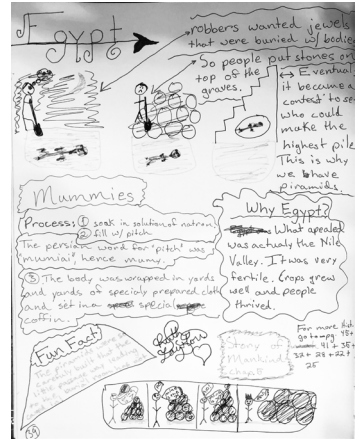 Egypt
robbers wanted jewels
that were buried w/ bodies
So people put stones on
top of the
graves.
↔ Eventual
it became a
contest to se
who could
make the
highest pile
This is why
we bhave
piramids.
Mummies
Process: ① soak in solution of natron
② fill w/ pitch
The persian word for "pitch" was
"mumiai", hence mumy.
③ The body was wrapped in yards
and yards of specialy prepared cloth
and set in a special
coffin.
Why Egypt?
What apealed
was actualy the Nile
Valley. It was very
fertile. Crops grew
well and people
thrived.
Fun Fact
Story of
Mankind
chap 8
For more
go to pg 45+
41 + 35+
32 + 29 + 22 +
25
39